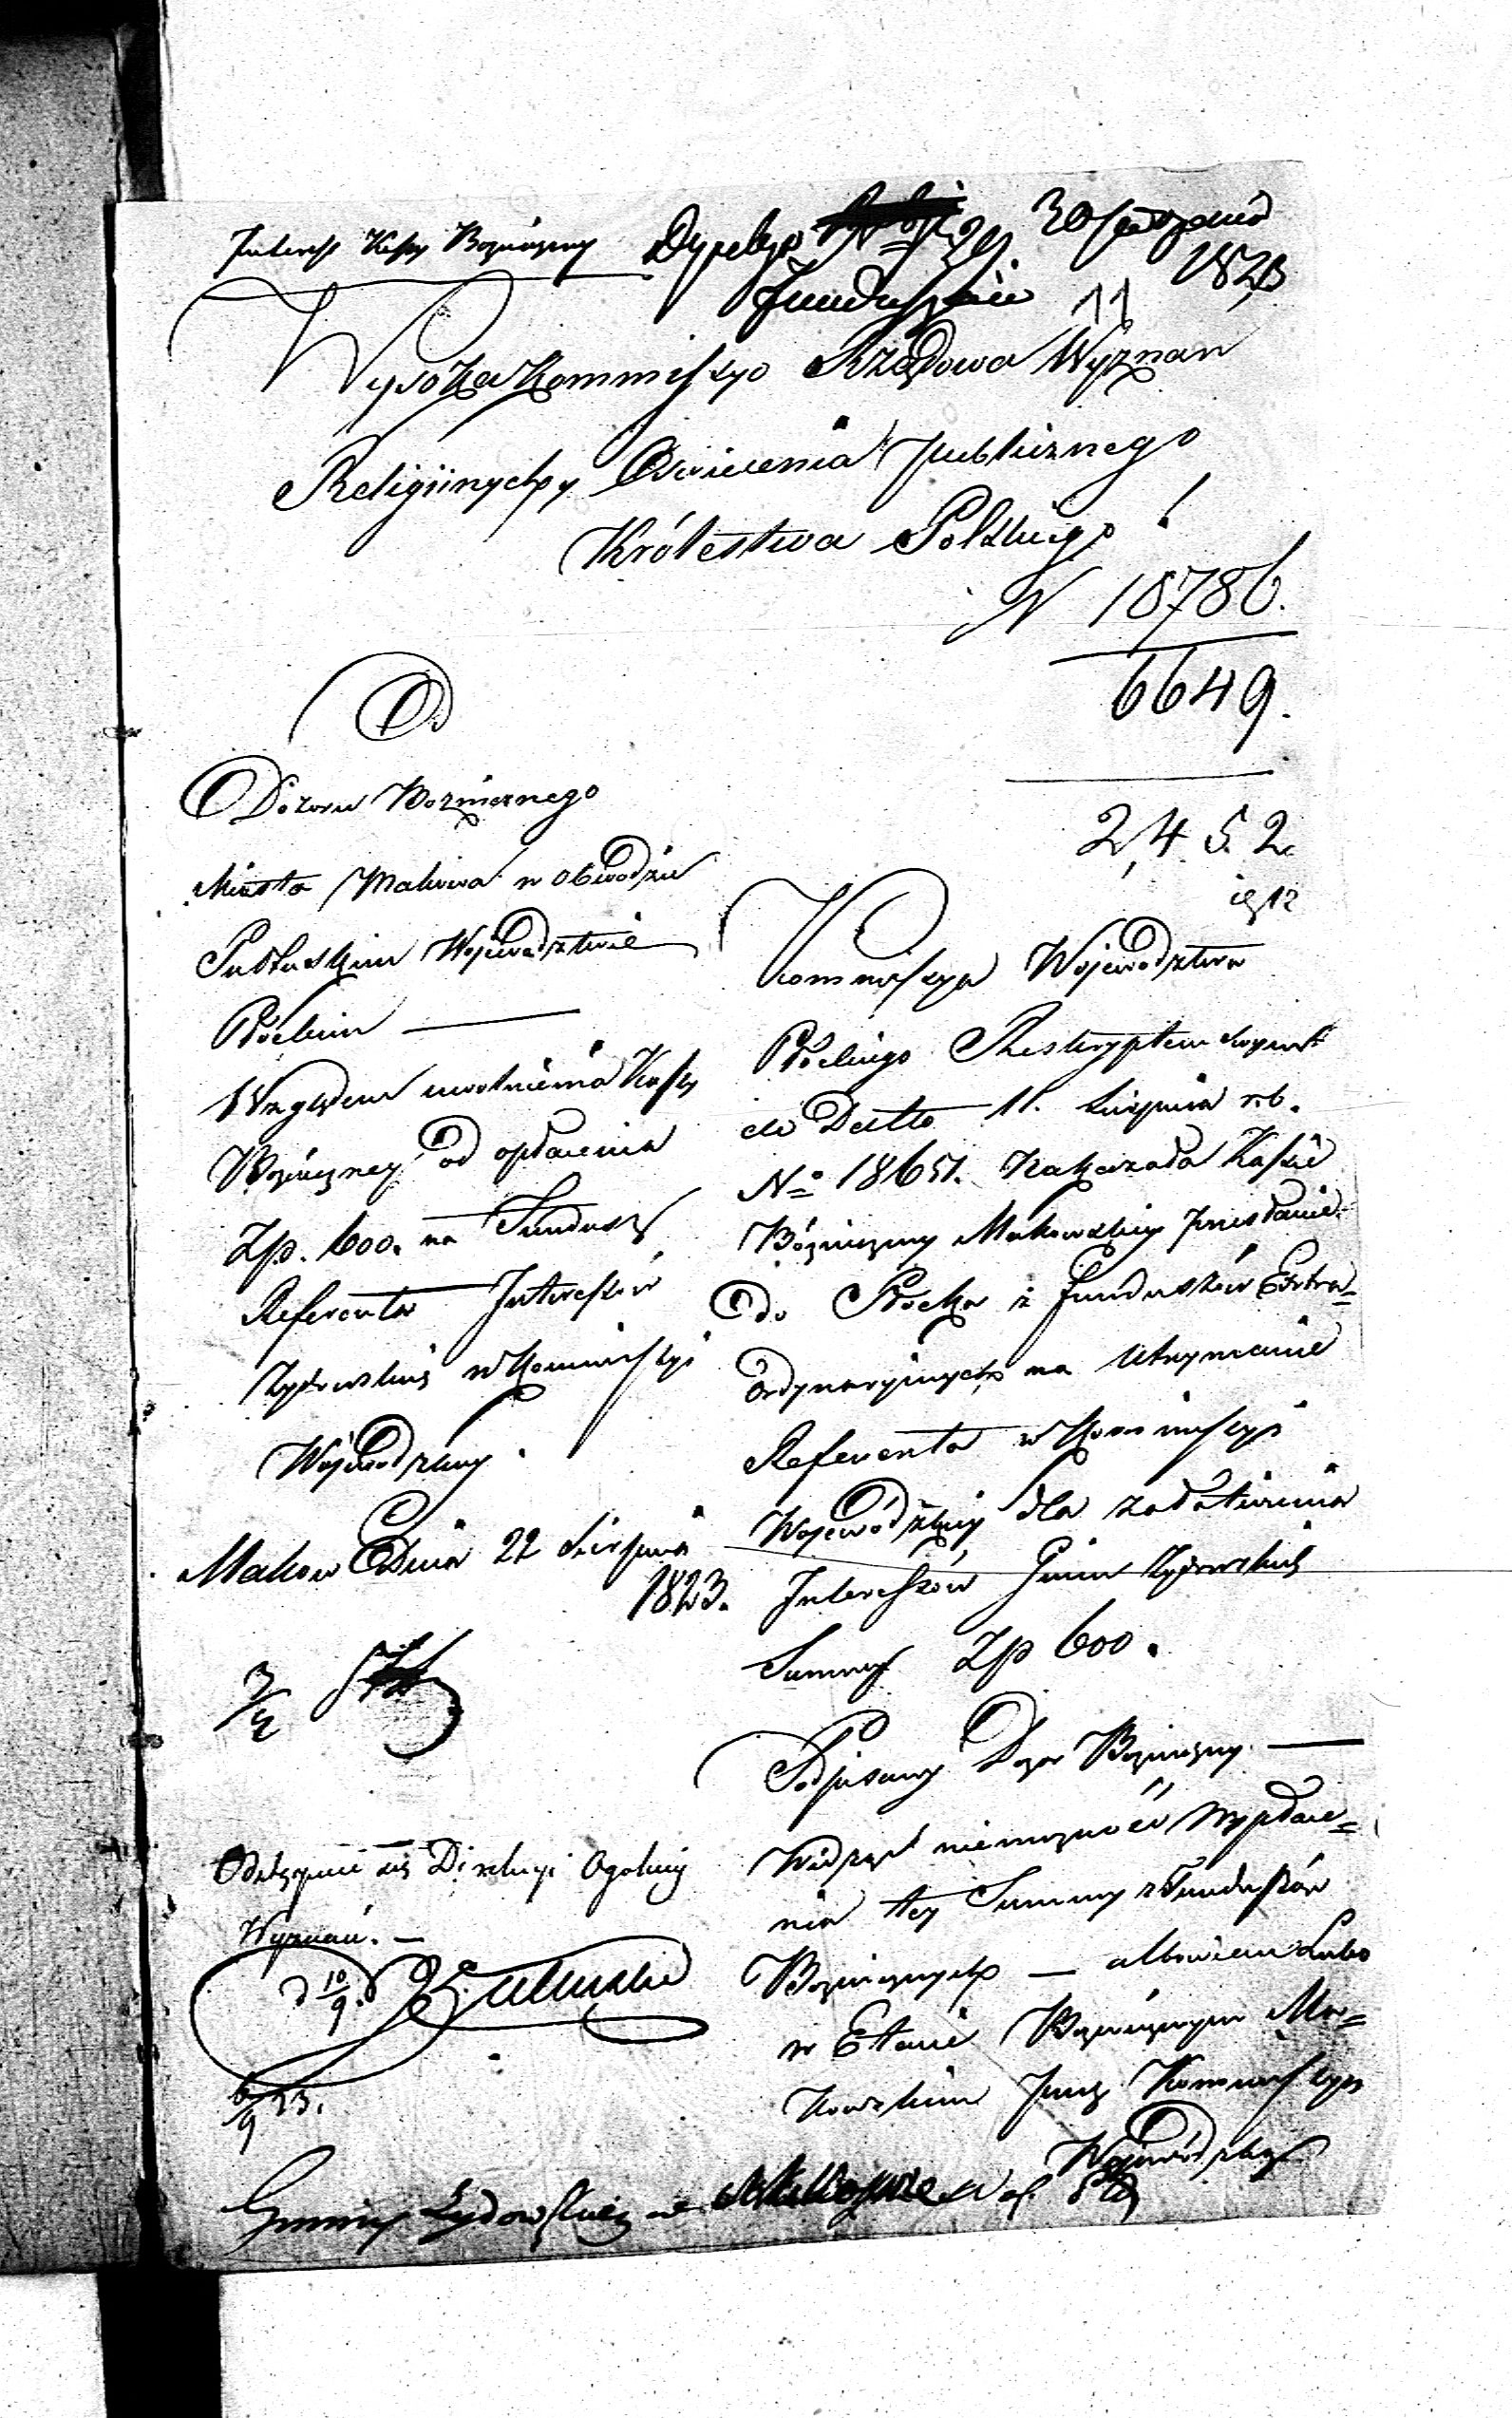 Interess Kassy Bożniczney
30 1823
Funduszów 11
Wysoka Kommissyo Rządowa Wyznan
Religiinych y Oswiecenia publicznego
Królestwa Polskiego!
N 18786.
6649.
2,4 5. 2
Od
Dozoru Boznicznego
Miasta Makowa w Obwodzie
Pułtuskim Wojewodztwie
Płockim —
Względem uwolnienia Kassy
Bozniczney od opłacenia
Zp. 600. na Fundusz
Referenta Interessów
Żydowskich w Kommissyi
Wojewodzkiey.
Makow Dnia 22 Sierpnia
1823.
Odstępuie się Dyrekcyi Ogolney
Wyznań. —
d 10/9.
6/9 23.
Kommissya Wojewodztwa
Płockiego Reskryptem swym
de Datto 11. Sierpnia r.b.
No 18651. Nakazała Kassie
Bóżniczney Makowskiey przesłanie
do Płocka z Funduszów Extra=
ordynaryinych na Utrzymanie
Referenta w Kommissyi
Wojewódzkiey dla załatwienia
Interessów Gmin Żydowskich
Summy Zp 600.
Podpisany Dozor Bozniczny —
Widząc niemożność wypłace=
nia tey Summy z Funduszów
Bozniczych — albowiem Lubo
w Etacie Bozniczym Ma=
kowskim przez Kommissyą
Wojewódzką
Gminy Żydowskiey w Makowie